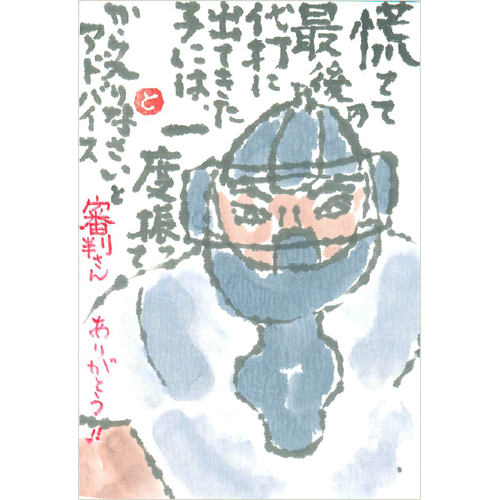 慌てて
最後の
代打に
出てきた
子には、
一度振って
から入りなさいと
アドバイス
審判さん
ありがとう!!
と